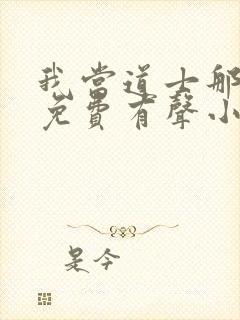 我当道士那
免費有聲小
是今